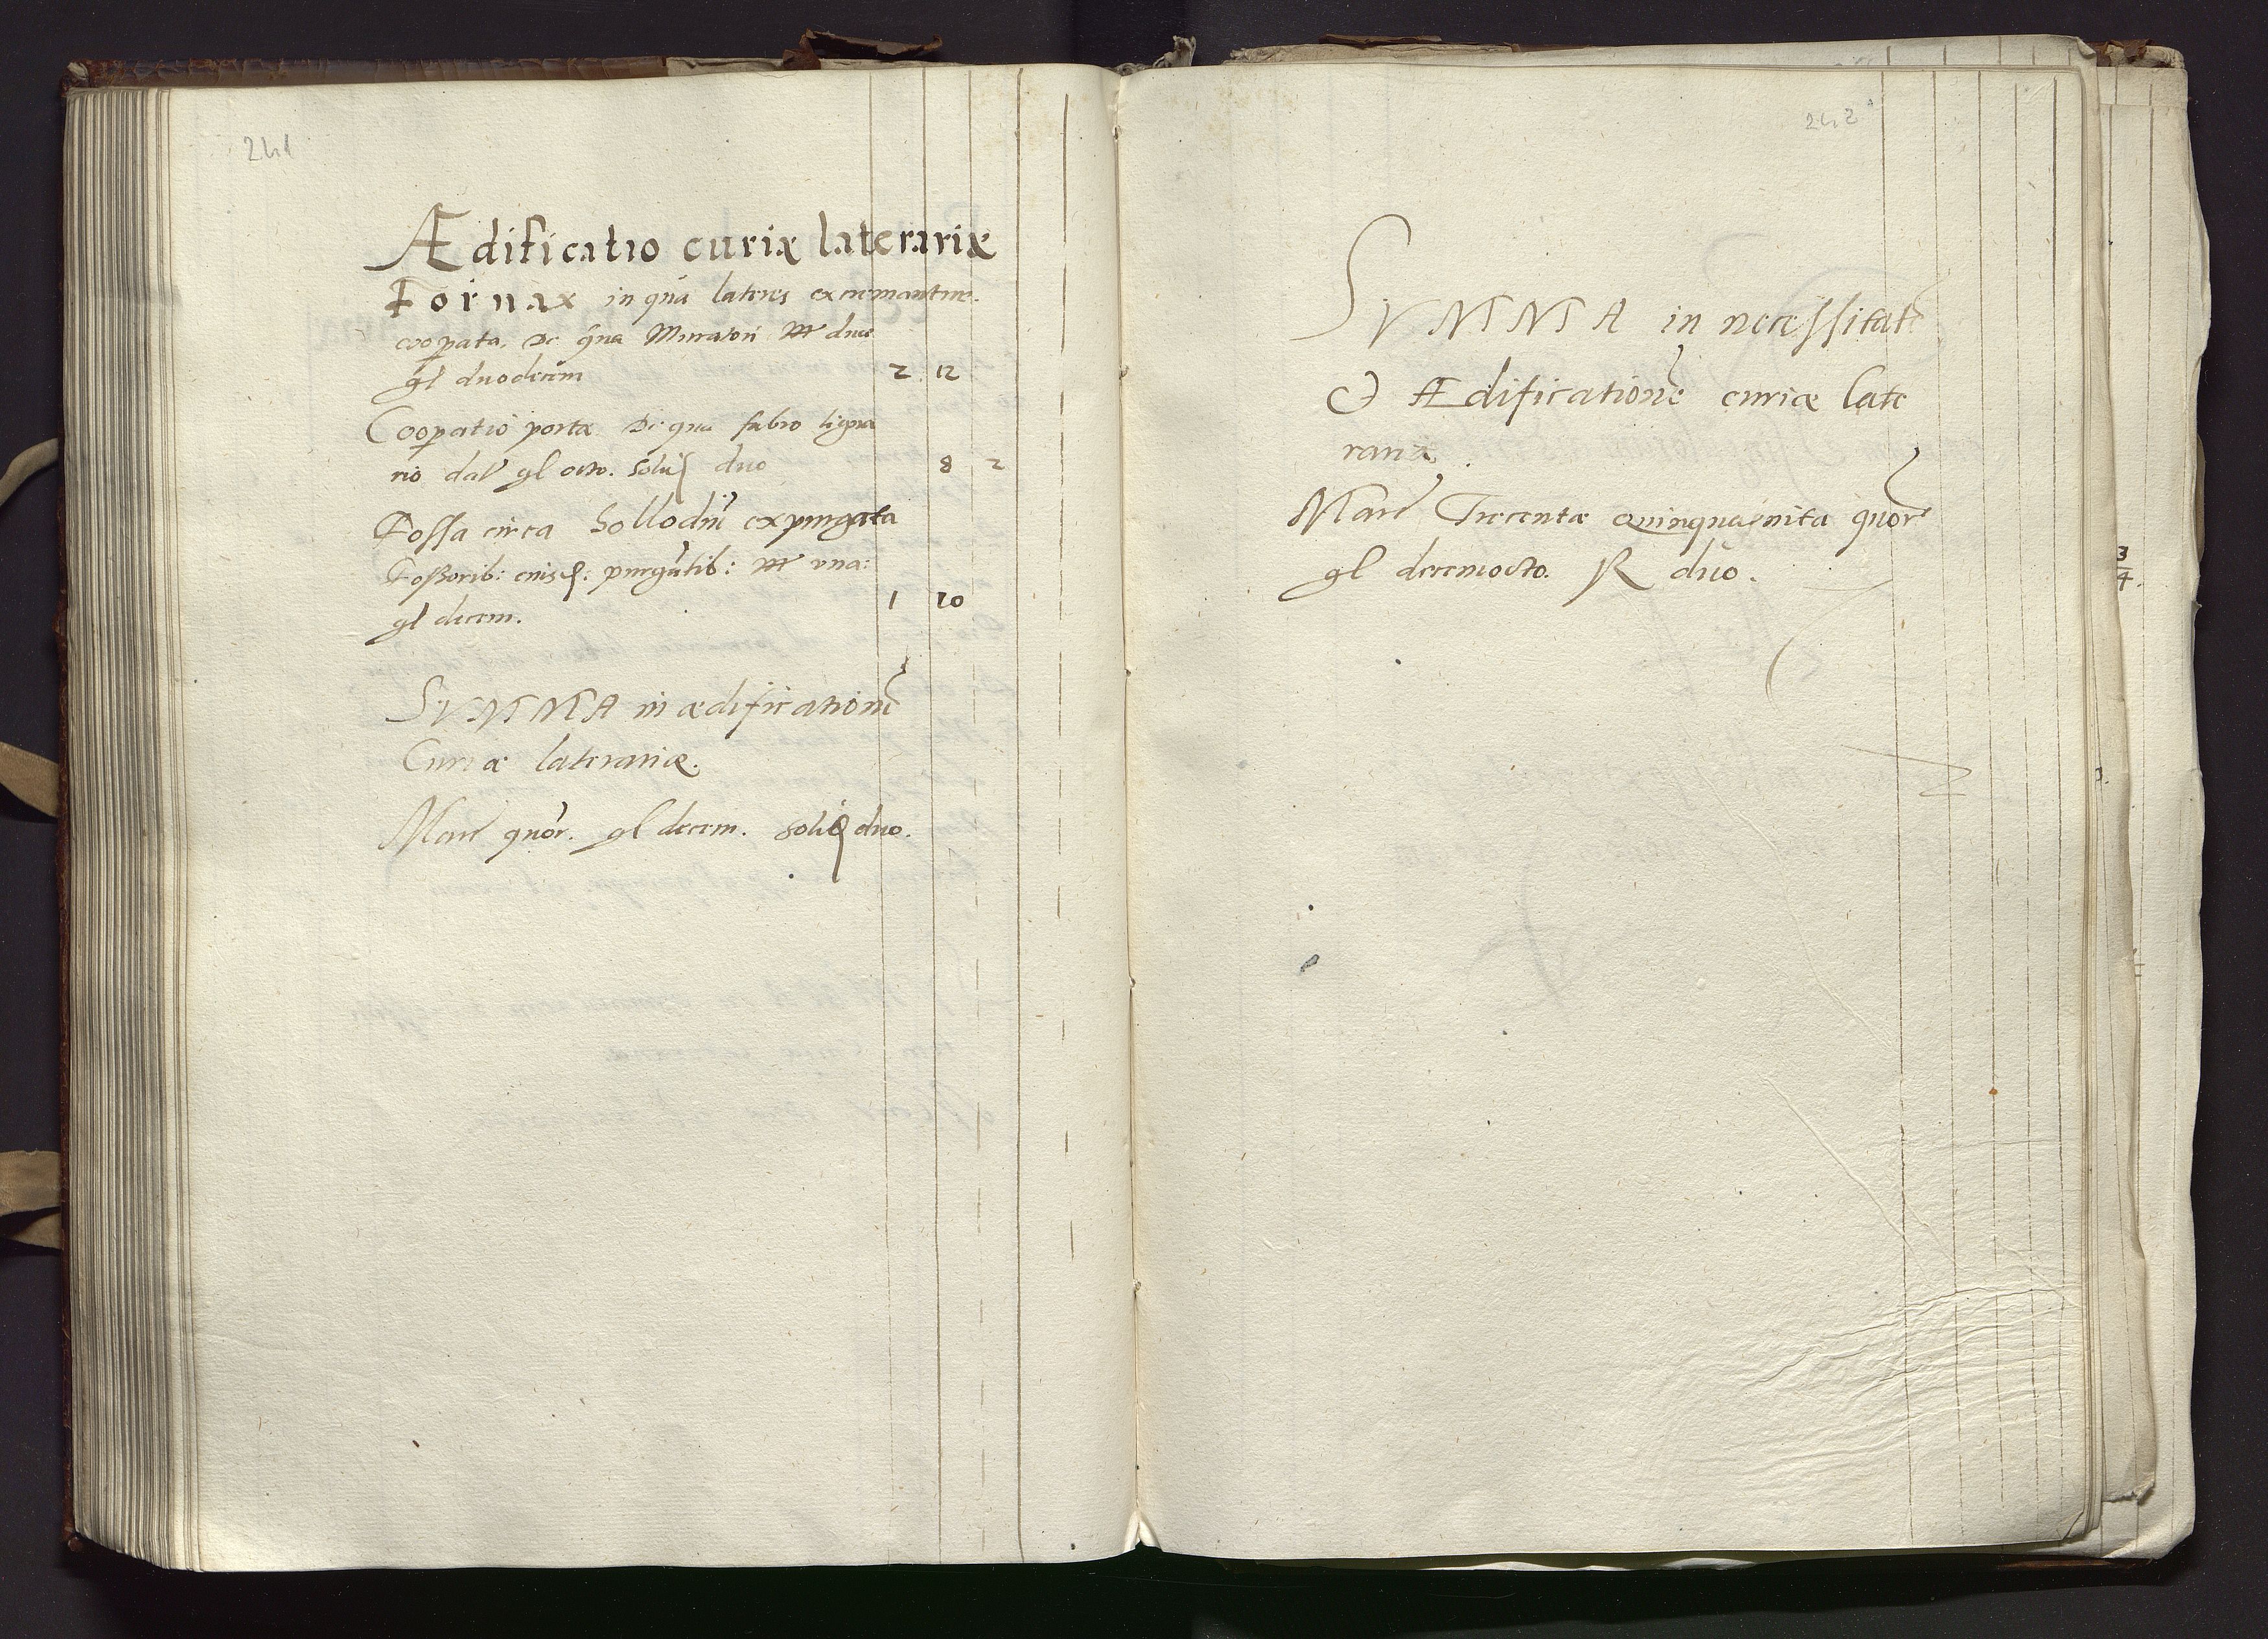 241
Ædificatio curiæ laterariæ
Fornax in qua lateres excremantur.
coopata. De qua Muratori duæ
gl duodecim 2 12
Coopatio portæ De qua fabro ligna
rio dat gl octo. solid duo 8 2
Fossa circa Sollodiū expurgata
Fossorib: eius purgātib: vna:
gl decem. 1 10
SVMMA in ædificationē
Curiæ laterariæ.
Marc quor. gl decem. solid duo.
242
SVMMA in necessitatē
& Ædificationē curiæ late
rariæ.
Marc Trecentæ Quinquaginta quor
gl decemocto. R duo.
3
4